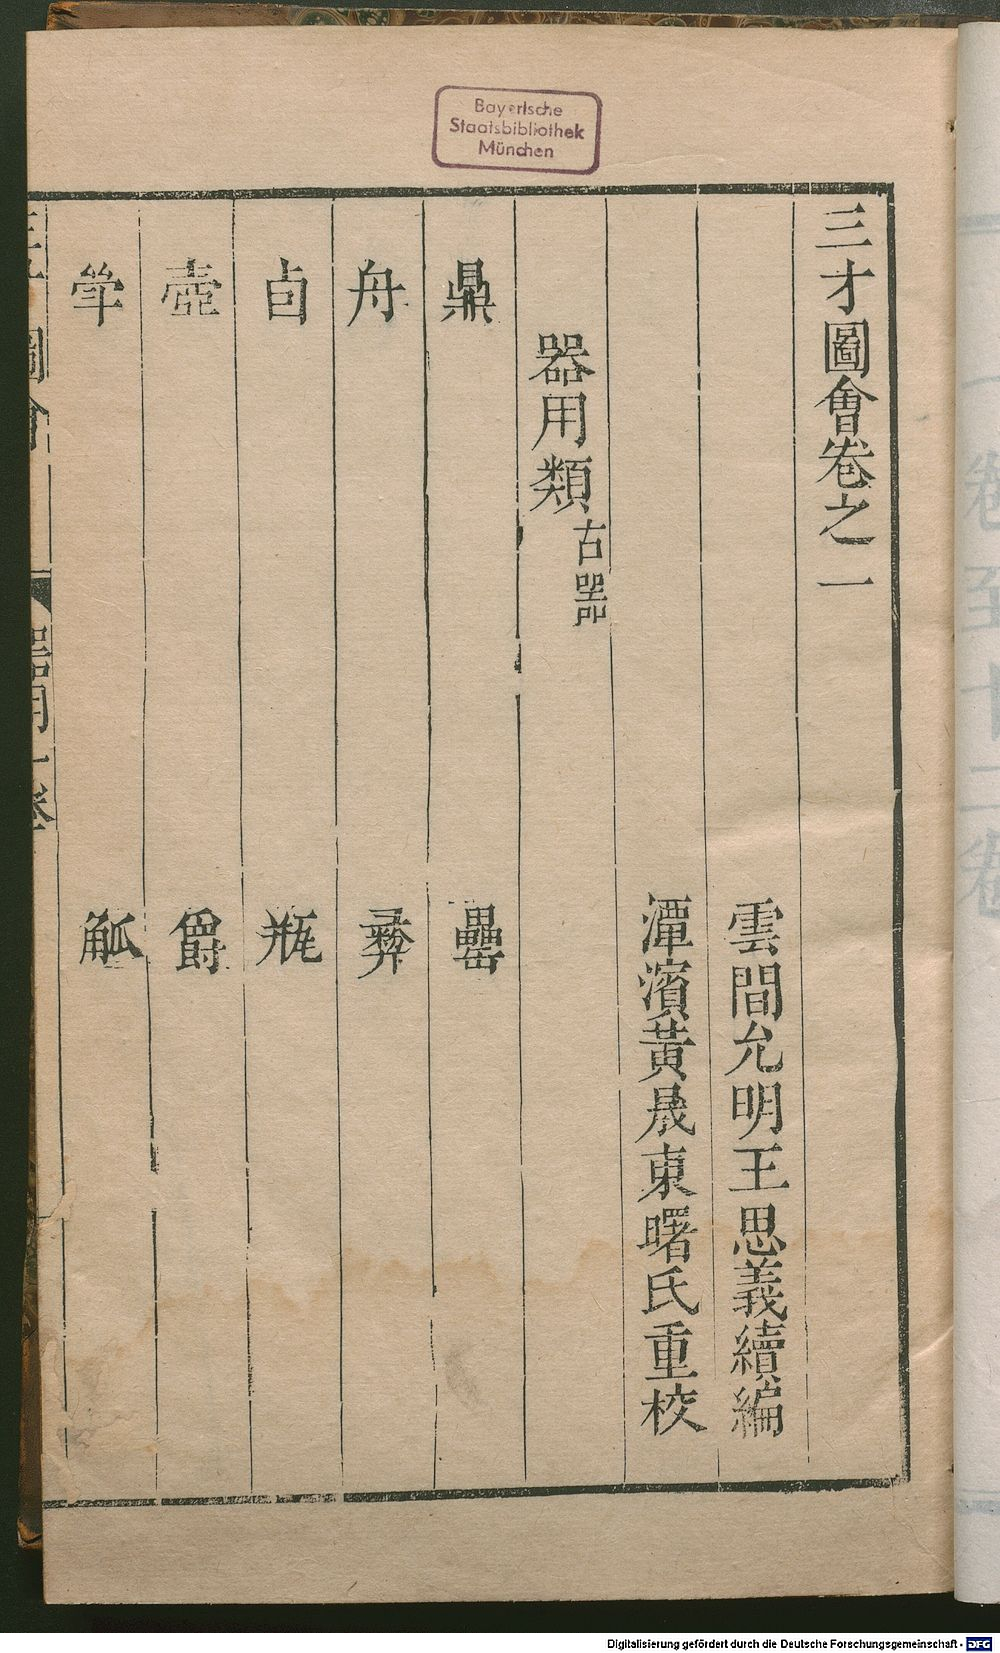 Bayerische
Staatsbibliothek
München
三才圖會卷之一
雲間允明王思義續編
潭濱黃晟東曙氏重校
器用類古器
鼎 罍
舟 彝
卣 瓶
壺 爵
斝 觚
三才圖會 器用一卷
Digitalisierung gefördert durch die Deutsche Forschungsgemeinschaft - DFG